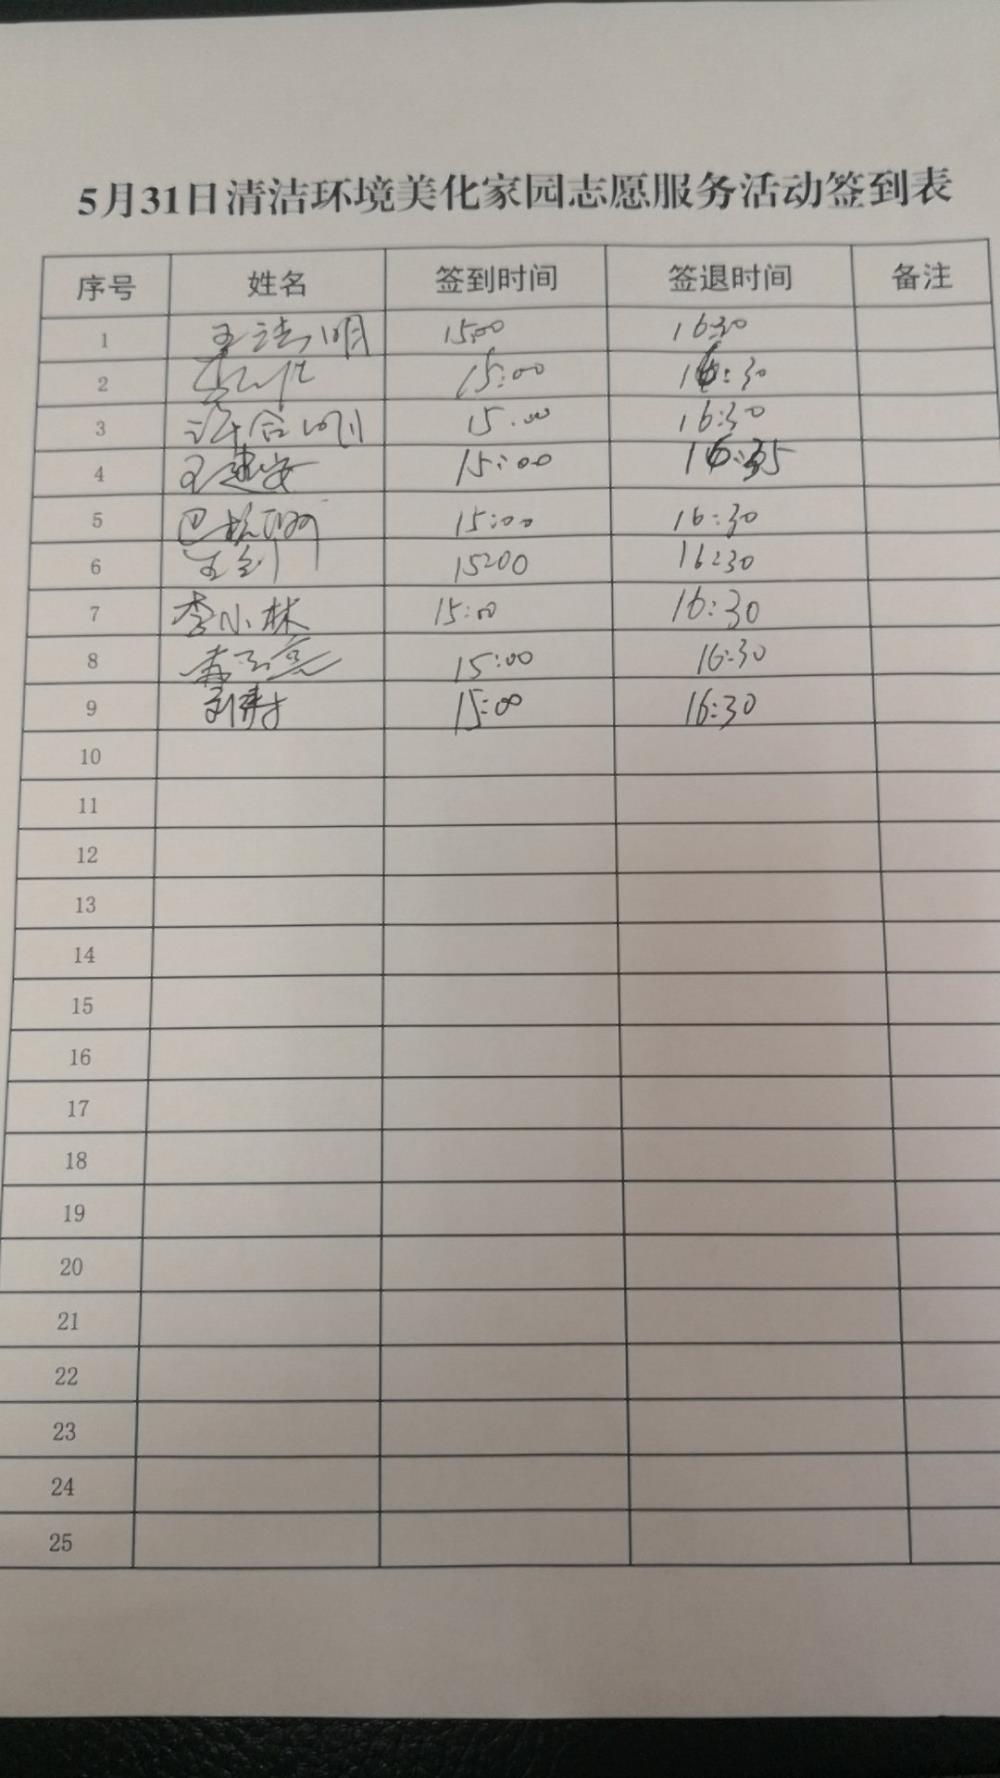 5月31日清洁环境美化家园志愿服务活动签到表
序号 姓名 签到时间 签退时间 备注
1 15:00 16:30
2 15:00 16:30
3 15:00 16:30
4 王建安 15:00 16:35
5 15:00 16:30
6 王剑 15:00 16:30
7 李小林 15:00 16:30
8 15:00 16:30
9 15:00 16:30
10
11
12
13
14
15
16
17
18
19
20
21
22
23
24
25